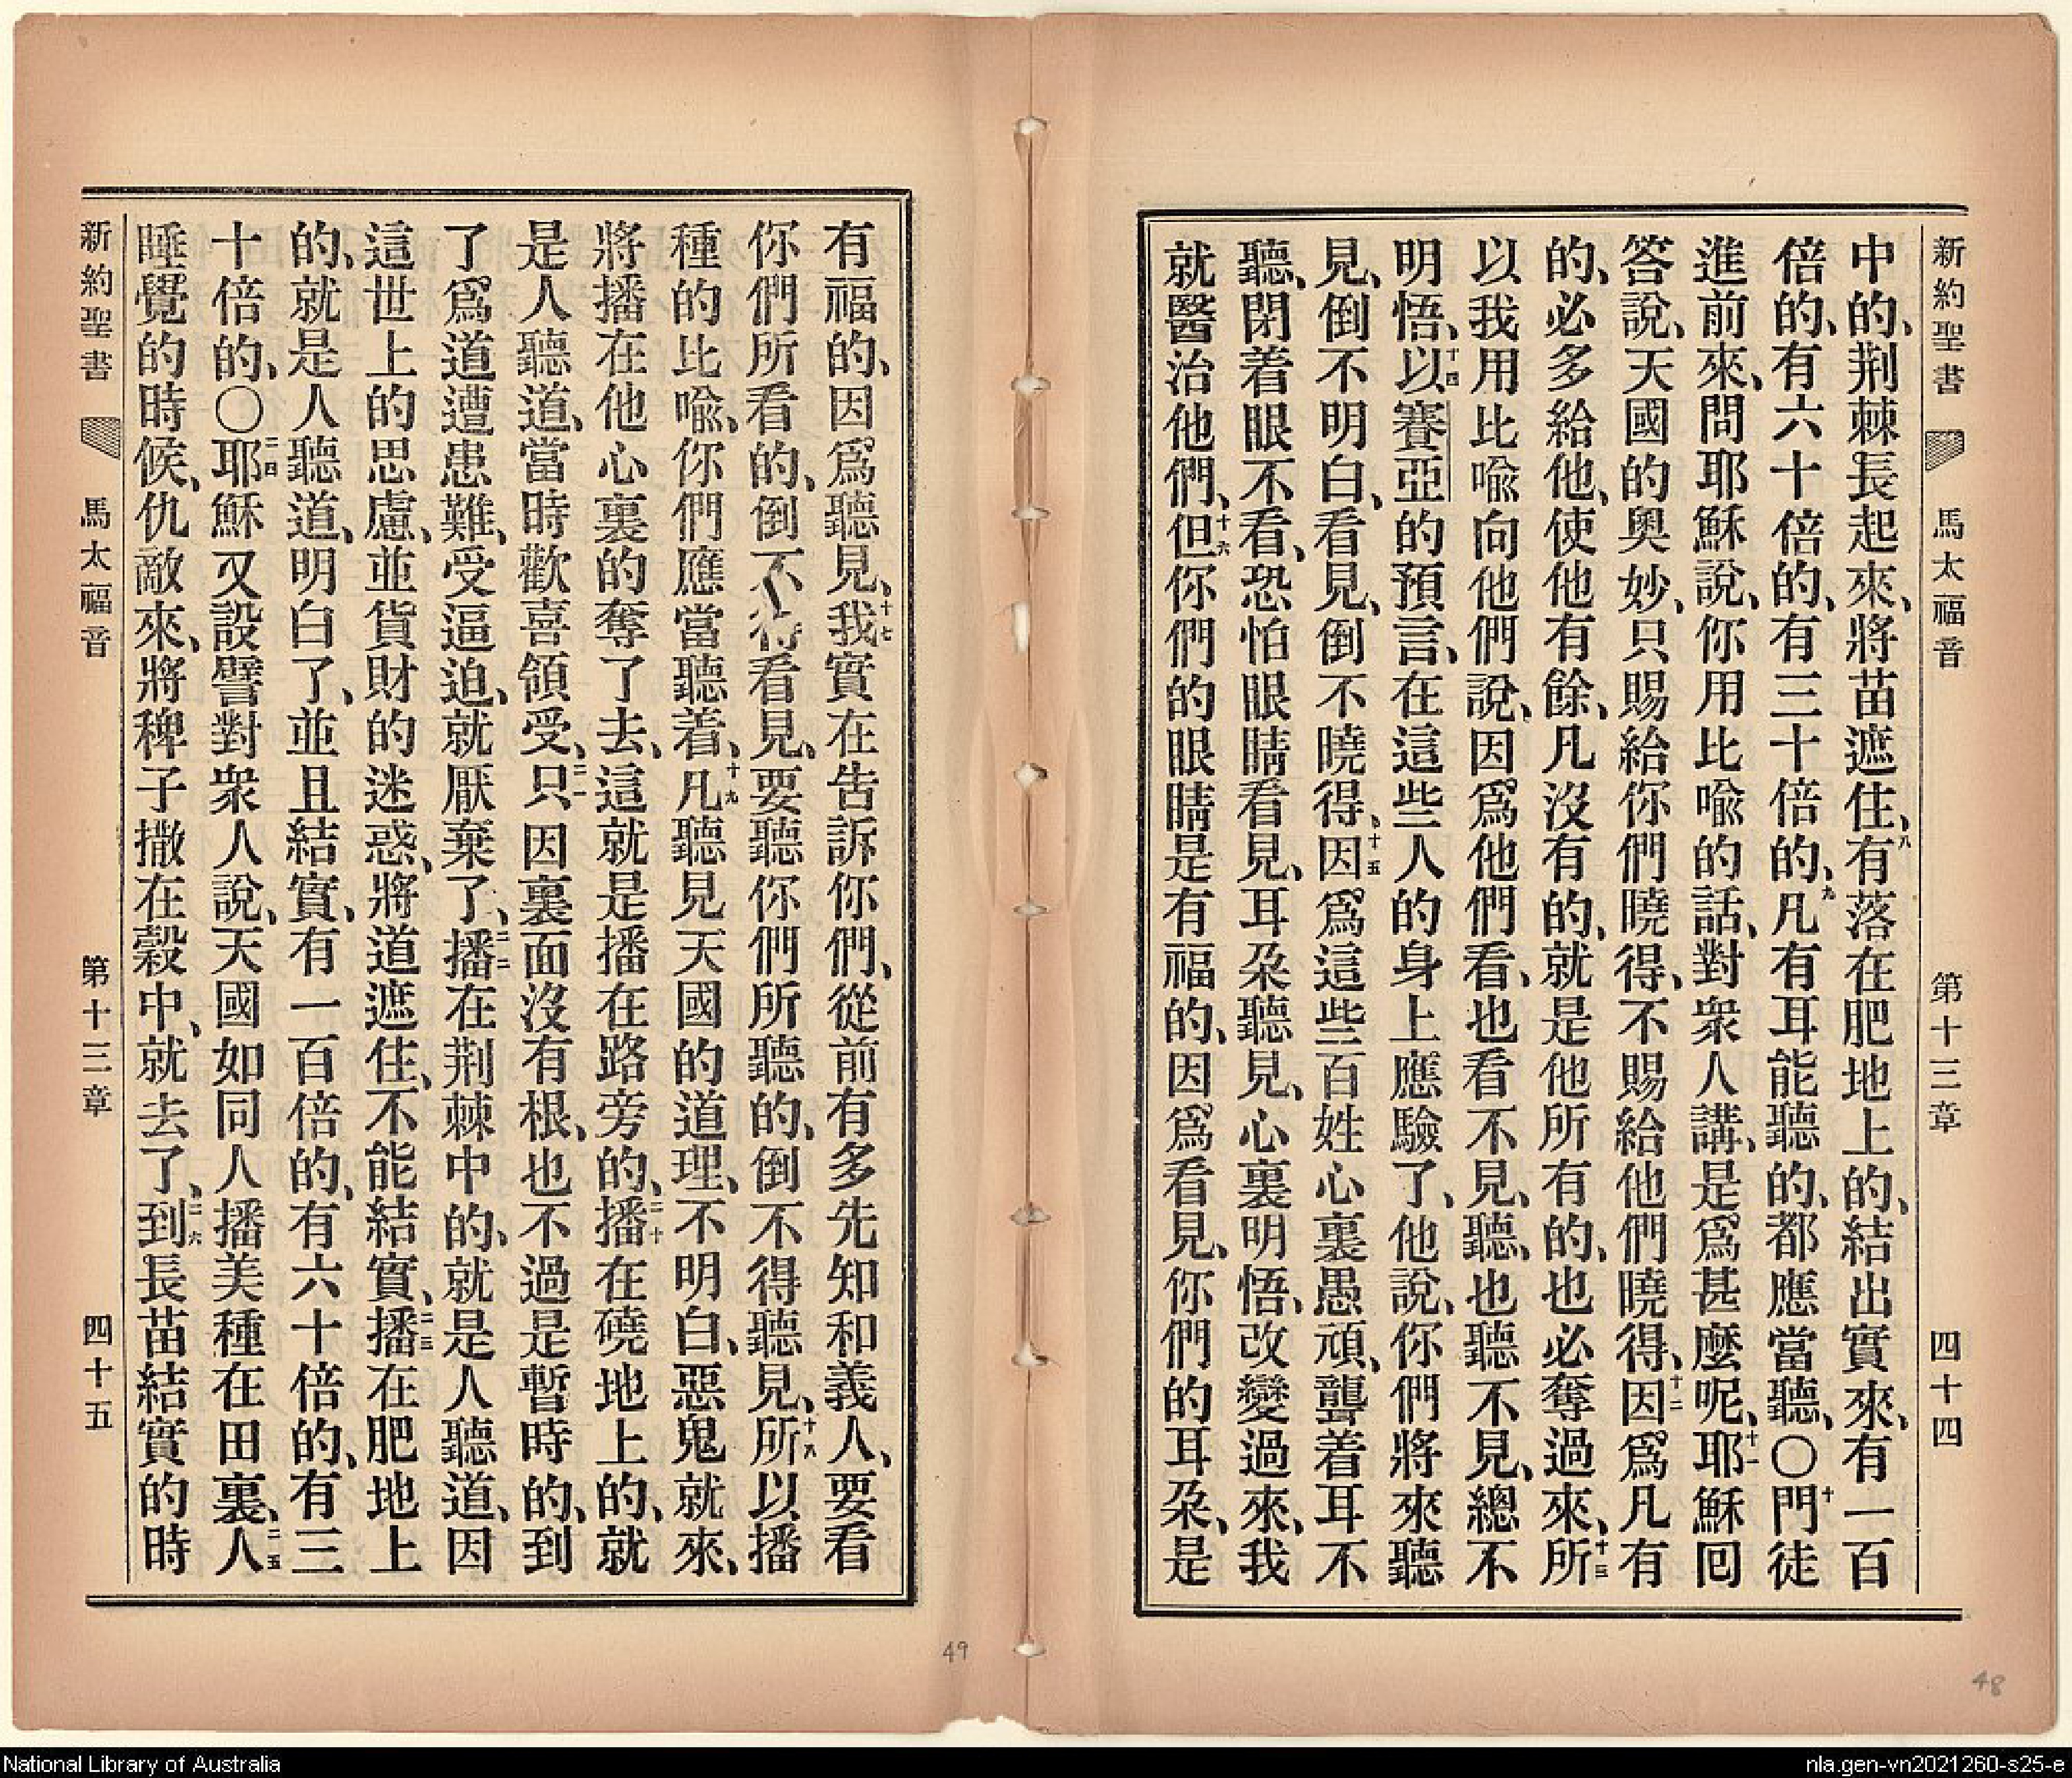 新約聖書 馬太福音 第十三章 四十四
中的、荆棘長起來、將苗遮住、八有落在肥地上的、結出實來、有一百
倍的、有六十倍的、有三十倍的、九凡有耳能聽的、都應當聽、〇十門徒
進前來、問耶穌說、你用比喩的話、對衆人講、是爲甚麼呢、十一耶穌囘
答說、天國的奧妙、只賜給你們曉得、不賜給他們曉得、十二因爲凡有
的、必多給他、使他有餘、凡沒有的、就是他所有的、也必奪過來、十三所
以我用比喩向他們說、因爲他們看、也看不見、聽、也聽不見、總不
明悟、十四以賽亞的預言、在這些人的身上應驗了、他說、你們將來聽
見、倒不明白、看見、倒不曉得、十五因爲這些百姓心裏愚頑、聾着耳不
聽、閉着眼不看、恐怕眼睛看見、耳朶聽見、心裏明悟、改變過來、我
就醫治他們、十六但你們的眼睛是有福的、因爲看見、你們的耳朶、是
有福的、因爲聽見、十七我實在告訴你們、從前有多先知和義人、要看
你們所看的、倒不得看見、要聽你們所聽的、倒不得聽見、十八所以播
種的比喩、你們應當聽着、十九凡聽見天國的道理、不明白、惡鬼就來、
將播在他心裏的奪了去、這就是播在路旁的、二十播在磽地上的、就
是人聽道、當時歡喜領受、二一只因裏面沒有根、也不過是暫時的、到
了爲道遭患難、受逼迫、就厭棄了、二二播在荆棘中的、就是人聽道、因
這世上的思慮、並貨財的迷惑、將道遮住、不能結實、二三播在肥地上
的、就是人聽道、明白了、並且結實、有一百倍的、有六十倍的、有三
十倍的、〇二四耶穌又設譬對衆人說、天國如同人播美種在田裏、二五人
睡覺的時候、仇敵來、將稗子撒在穀中、就去了、二六到長苗結實的時
新約聖書 馬太福音 第十三章 四十五
49
48
National Library of Australia
nla.gen-vn2021260-s25-e